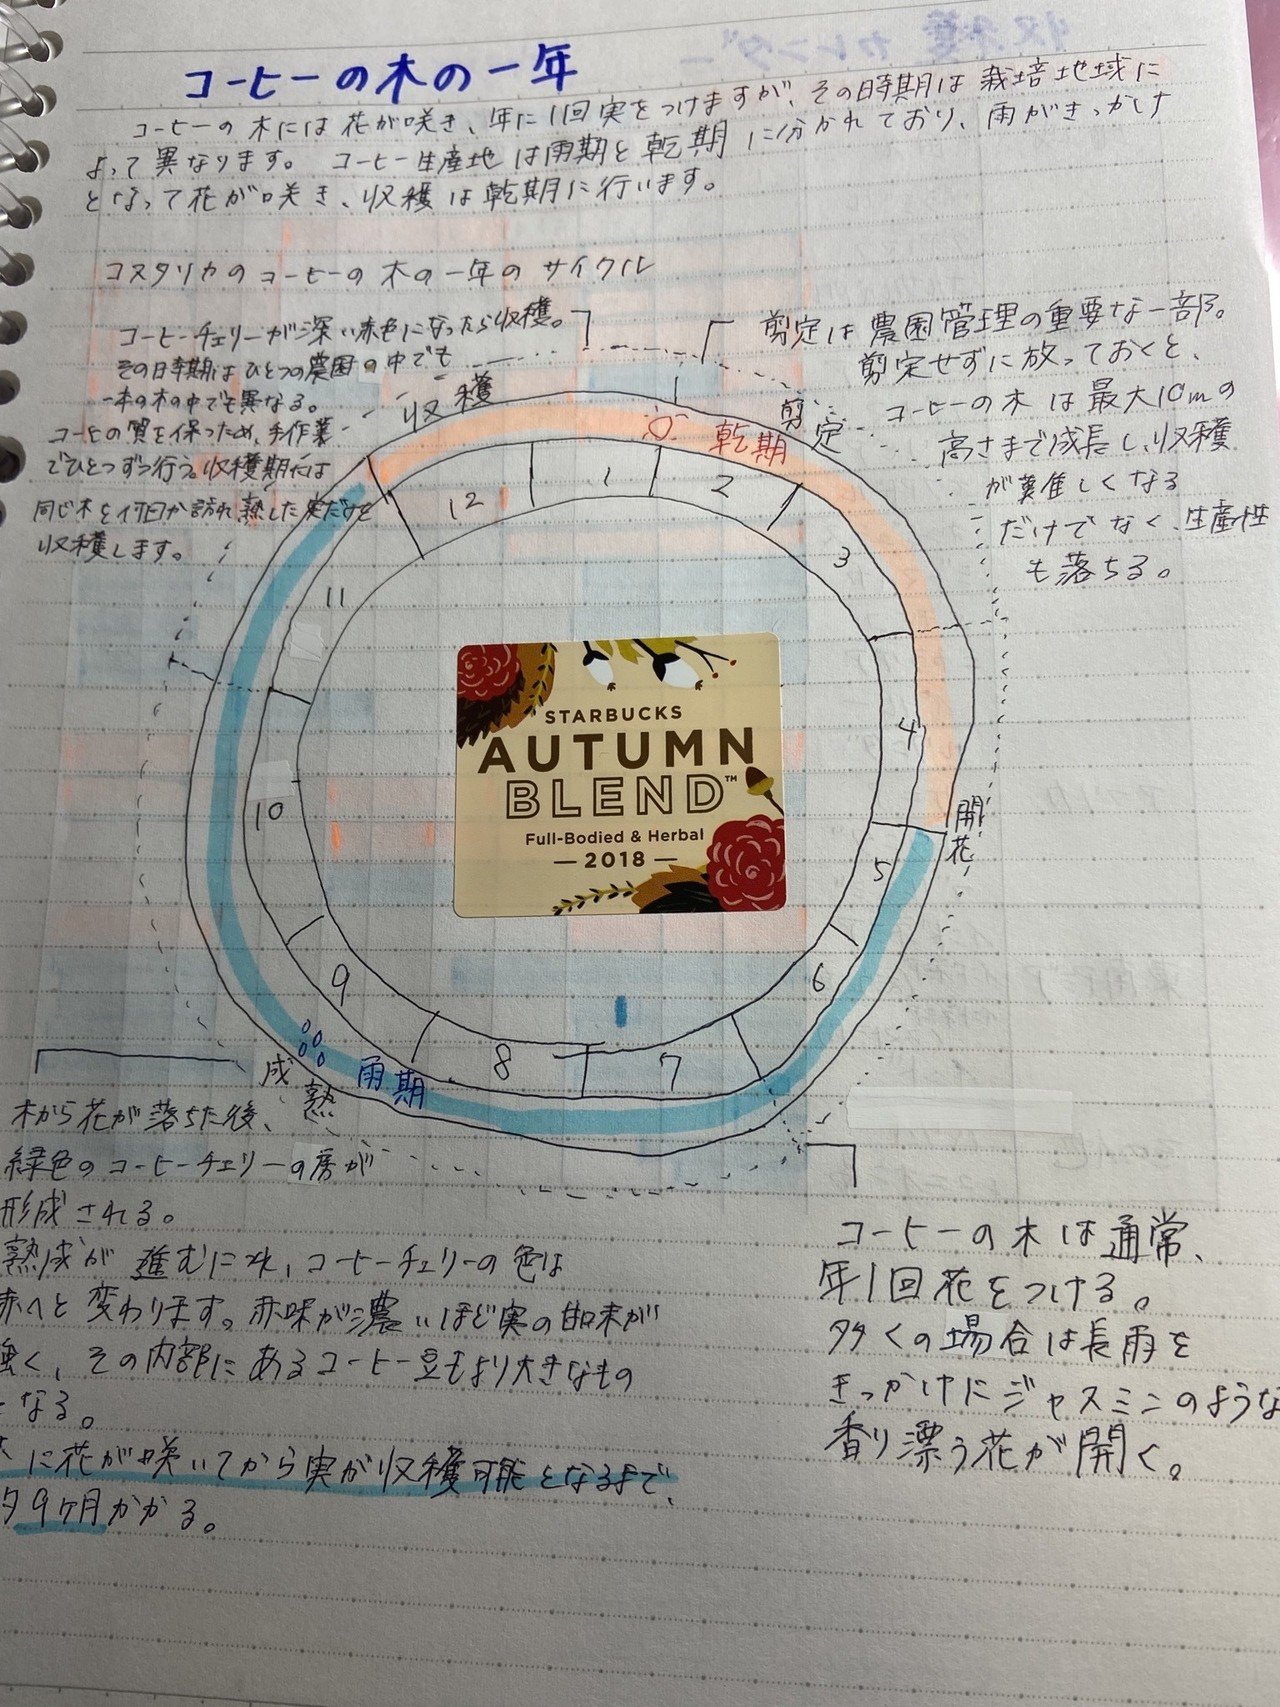 コーヒーの木の一年
コーヒーの木には花が咲き、年に1回実をつけますが、その時期は栽培地域に
よって異なります。コーヒー生産地は雨期と乾期に分かれており、雨がきっかけ
となって花が咲き、収穫は乾期に行います。
コスタリカのコーヒーの木の一年のサイクル
コーヒーチェリーが深い赤色になったら収穫。
その時期はひとつの農園の中でも
一本の木の中でも異なる。
コーヒの質を保つため、手作業
でひとつずつ行う。収穫期には
同じ木を何回か訪れ熟した実だけを
収穫します。
剪定は農園管理の重要な一部。
剪定せずに放っておくと、
コーヒーの木は最大10mの
高さまで成長し、収穫
が難しくなる
だけでなく、生産性
も落ちる。
収穫
乾期
剪定
12
1
2
3
11
4
10
5
9
6
8
7
開花
STARBUCKS
AUTUMN
BLEND™
Full-Bodied & Herbal
2018
成熟
雨期
木から花が落ちた後、
緑色のコーヒーチェリーの房が
形成される。
熟成が進むにつれ、コーヒーチェリーの色は
赤へと変わります。赤味が濃いほど実の甘味が
強く、その内部にあるコーヒー豆もより大きなもの
となる。
に花が咲いてから実が収穫可能となるまで、
9ヶ月かかる。
コーヒーの木は通常、
年1回花をつける。
多くの場合は長雨を
きっかけにジャスミンのような
香り漂う花が開く。